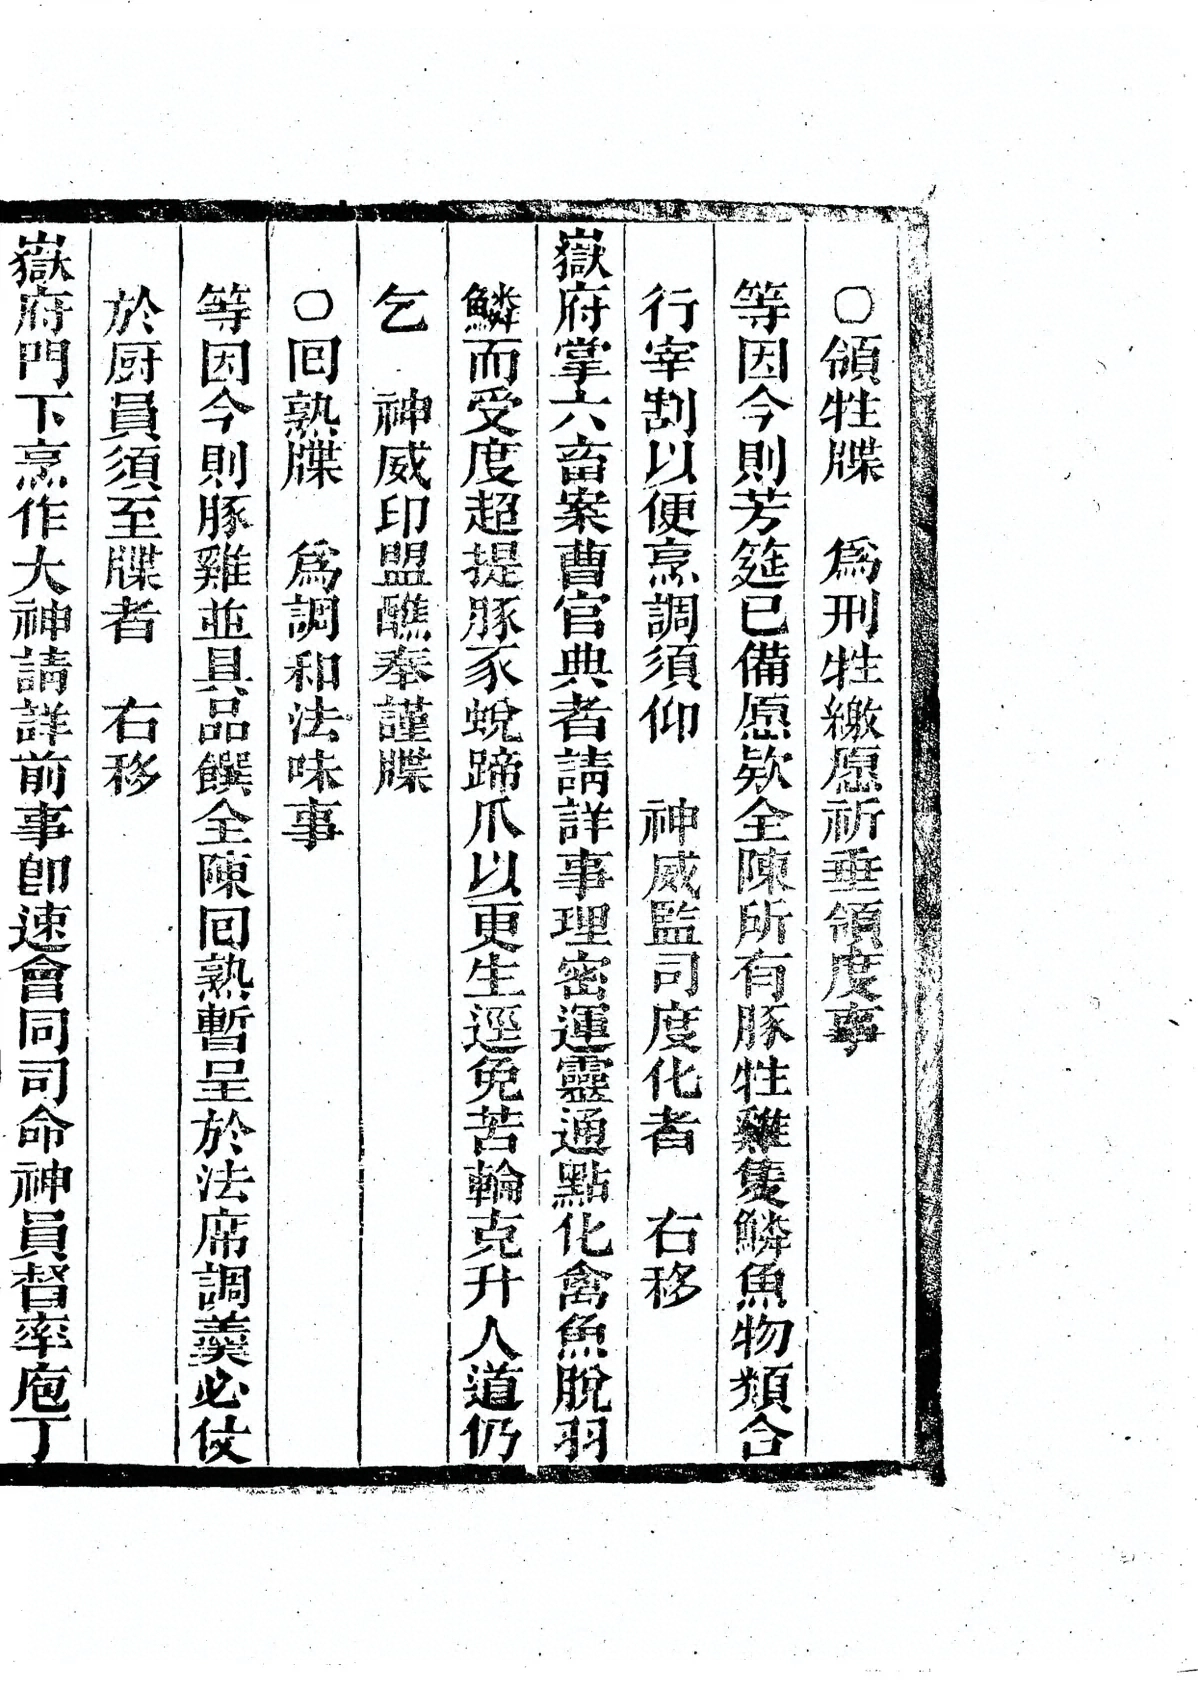 ○領牲牒　為刑牲繳愿祈垂領度事
等因今則芳筵已備愿欵全陳所有豚牲雞隻鱗魚物類合
行宰割以便烹調須仰　神威監司度化者　右移
嶽府掌六畜案曹官典者請詳事理密運靈通點化禽魚脫羽
鱗而受度超提豚豕蛻蹄爪以更生逕免苦輪克升人道仍
乞　神威印盟醮奉謹牒
○囘熟牒　為調和法味事
等因今則豚雞並具品饌全陳囘熟暫呈於法席調羹必仗
於厨員須至牒者　右移
嶽府門下烹作大神請詳前事即速會同司命神員督率庖丁